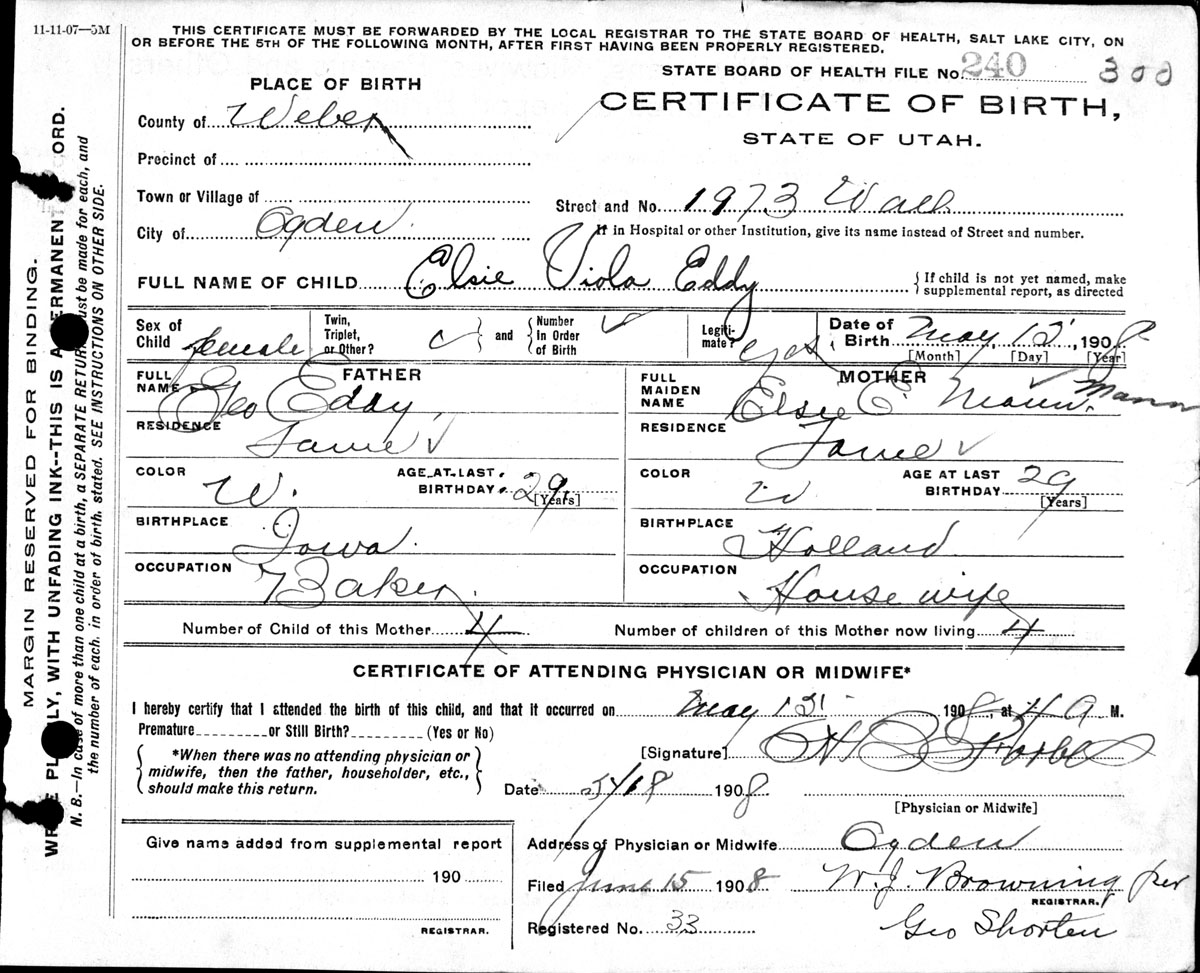 11-11-07—5M
THIS CERTIFICATE MUST BE FORWARDED BY THE LOCAL REGISTRAR TO THE STATE BOARD OF HEALTH, SALT LAKE CITY, ON
OR BEFORE THE 5TH OF THE FOLLOWING MONTH, AFTER FIRST HAVING BEEN PROPERLY REGISTERED.
STATE BOARD OF HEALTH FILE No. 240 300
PLACE OF BIRTH
CERTIFICATE OF BIRTH,
STATE OF UTAH.
County of Weber
Precinct of
Town or Village of
Street and No. 1973 Wall
City of Ogden
If in Hospital or other Institution, give its name instead of Street and number.
FULL NAME OF CHILD Elsie Viola Eddy
{If child is not yet named, make
supplemental report, as directed
Sex of Child female
Twin, Triplet, or Other?
and
Number In Order of Birth
Legiti-mate? yes
Date of Birth May 13, 1908
[Month] [Day] [Year]
FATHER
FULL NAME Geo Eddy
RESIDENCE Same
COLOR W.
AGE AT LAST BIRTHDAY 29 [Years]
BIRTHPLACE Iowa
OCCUPATION Baker
MOTHER
FULL MAIDEN NAME Elsie C. Mann. Mann
RESIDENCE Same
COLOR W
AGE AT LAST BIRTHDAY 29 [Years]
BIRTHPLACE Holland
OCCUPATION Housewife
Number of Child of this Mother 4
Number of children of this Mother now living 4
CERTIFICATE OF ATTENDING PHYSICIAN OR MIDWIFE*
I hereby certify that I attended the birth of this child, and that it occurred on May 13 1908, at 4 A M.
Premature or Still Birth? (Yes or No)
{*When there was no attending physician or
midwife, then the father, householder, etc.,
should make this return.}
[Signature] H
Date 5/18 1908
[Physician or Midwife]
Give name added from supplemental report
190
REGISTRAR.
Address of Physician or Midwife Ogden
Filed June 15 1908 W. J. Browning per
REGISTRAR.
Registered No. 33 Geo Shorten
MARGIN RESERVED FOR BINDING.
WR PL LY, WITH UNFADING INK--THIS IS A ERMANEN ORD.
N. B.—In case of more than one child at a birth, a SEPARATE RETUR ust be made for each, and
the number of each, in order of birth, stated. SEE INSTRUCTIONS ON OTHER SIDE.